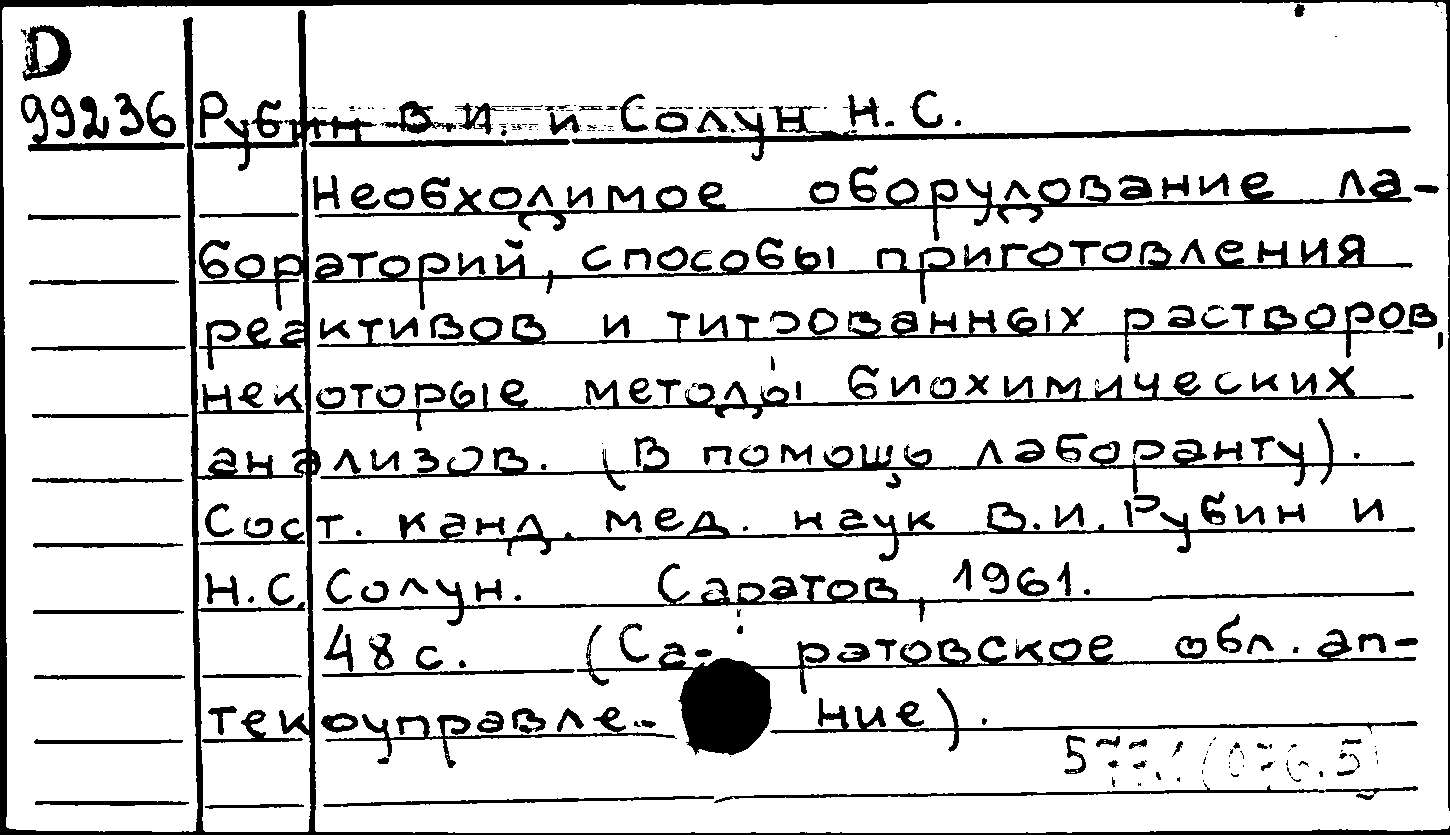 D
99236 Рубин В.И. и Солун Н.С.
Необходимое оборудование ла-
бораторий, способы приготовления
реактивов и титрованных растворов,
некоторые методы биохимических
анализов. (В помощь лаборанту).
Сост. канд. мед. наук В.И. Рубин и
Н.С. Солун. Саратов, 1961.
48 с. (Са- ратовское обл. ап-
текоуправле- ние).
577.1(076.5)